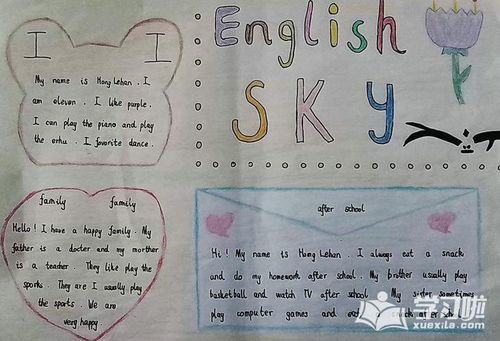 I I
My name is Hong Lehan . I
am eleven . I like purple .
I can play the piano and play
the erhu . I favorite dance .
English
SKY
family family
Hello ! I have a happy family . My
father is a docter and my morther
is a teacher . They like play the
sports . They are I usually play
the sports . We are
very happy .
after school
Hi ! My name is Hong Lehan . I always eat a snack
and do my homework after school . My brother usually play
basketball and watch TV after school . My sister sometimes
play computer games and eat snack after school
学习啦
xuexila.com